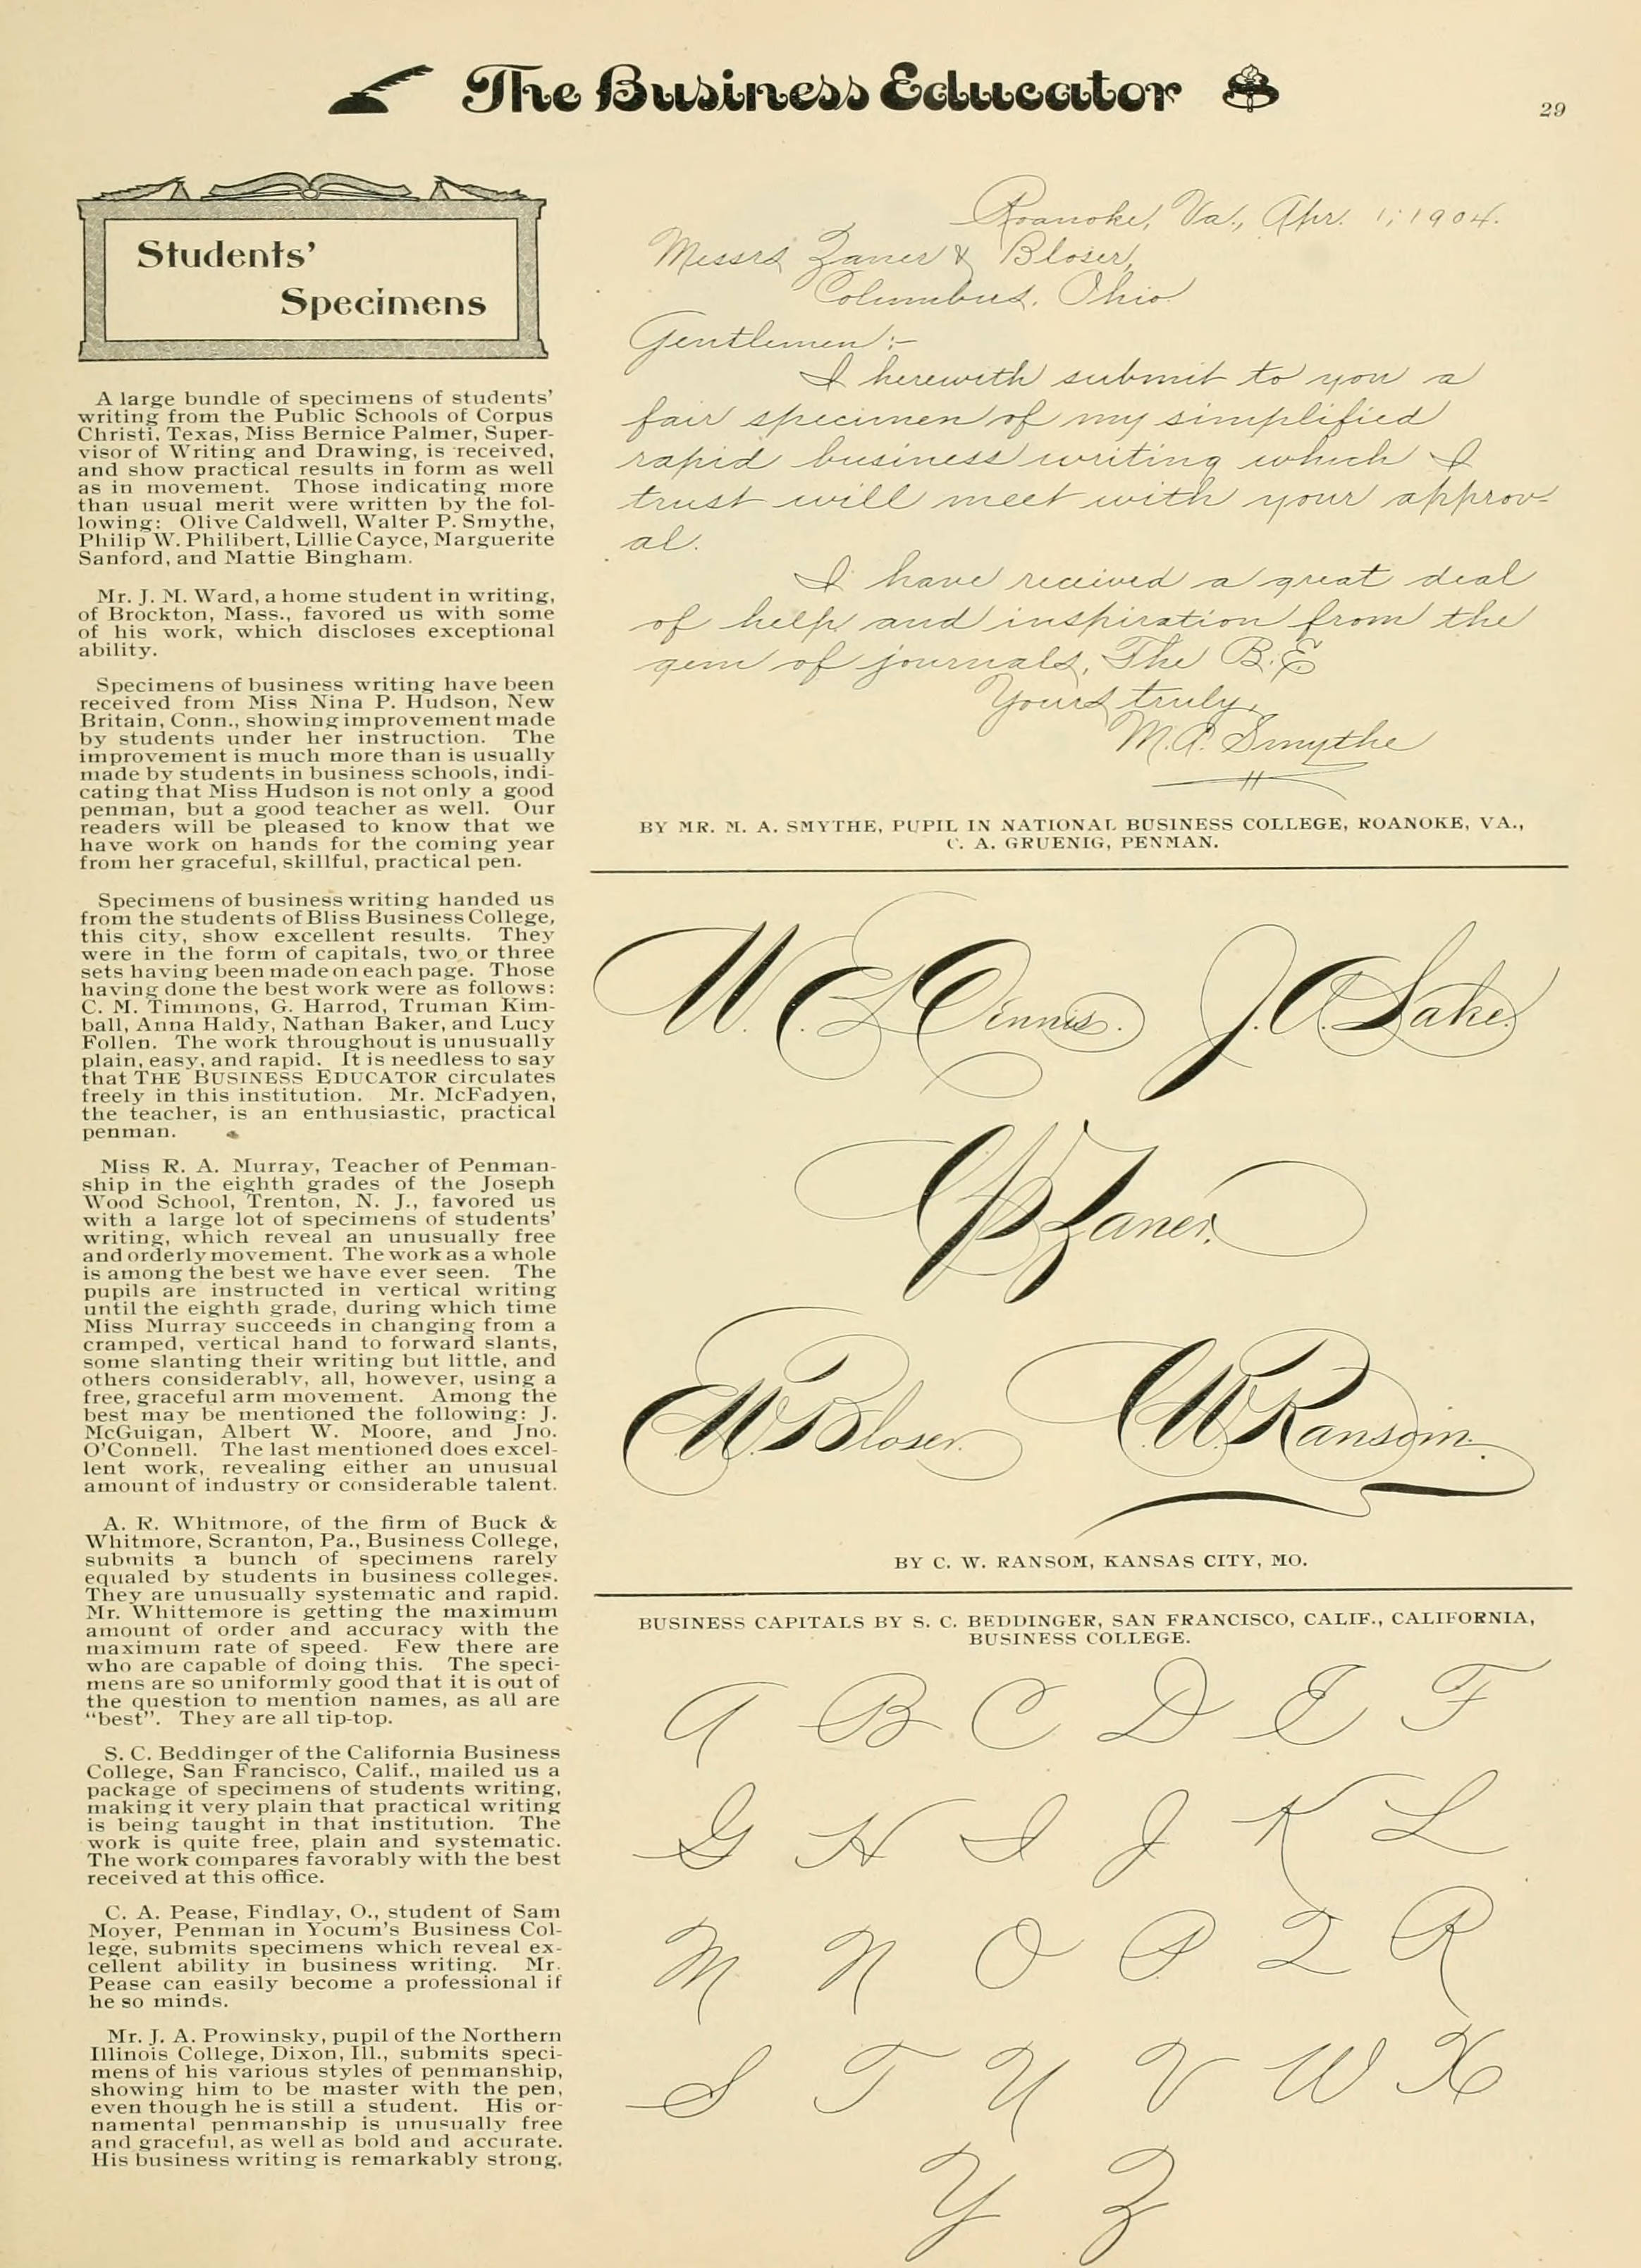 The Business Educator
29
Students'
Specimens
A large bundle of specimens of students'
writing from the Public Schools of Corpus
Christi, Texas, Miss Bernice Palmer, Super-
visor of Writing and Drawing, is received,
and show practical results in form as well
as in movement. Those indicating more
than usual merit were written by the fol-
lowing: Olive Caldwell, Walter P. Smythe,
Philip W. Philibert, Lillie Cayce, Marguerite
Sanford, and Mattie Bingham.
Mr. J. M. Ward, a home student in writing,
of Brockton, Mass., favored us with some
of his work, which discloses exceptional
ability.
Specimens of business writing have been
received from Miss Nina P. Hudson, New
Britain, Conn., showing improvement made
by students under her instruction. The
improvement is much more than is usually
made by students in business schools, indi-
cating that Miss Hudson is not only a good
penman, but a good teacher as well. Our
readers will be pleased to know that we
have work on hands for the coming year
from her graceful, skillful, practical pen.
Specimens of business writing handed us
from the students of Bliss Business College,
this city, show excellent results. They
were in the form of capitals, two or three
sets having been made on each page. Those
having done the best work were as follows:
C. M. Timmons, G. Harrod, Truman Kim-
ball, Anna Haldy, Nathan Baker, and Lucy
Follen. The work throughout is unusually
plain, easy, and rapid. It is needless to say
that THE BUSINESS EDUCATOR circulates
freely in this institution. Mr. McFadyen,
the teacher, is an enthusiastic, practical
penman.
Miss R. A. Murray, Teacher of Penman-
ship in the eighth grades of the Joseph
Wood School, Trenton, N. J., favored us
with a large lot of specimens of students'
writing, which reveal an unusually free
and orderly movement. The work as a whole
is among the best we have ever seen. The
pupils are instructed in vertical writing
until the eighth grade, during which time
Miss Murray succeeds in changing from a
cramped, vertical hand to forward slants,
some slanting their writing but little, and
others considerably, all, however, using a
free, graceful arm movement. Among the
best may be mentioned the following: J.
McGuigan, Albert W. Moore, and Jno.
O'Connell. The last mentioned does excel-
lent work, revealing either an unusual
amount of industry or considerable talent.
A. R. Whitmore, of the firm of Buck &
Whitmore, Scranton, Pa., Business College,
submits a bunch of specimens rarely
equaled by students in business colleges.
They are unusually systematic and rapid.
Mr. Whittemore is getting the maximum
amount of order and accuracy with the
maximum rate of speed. Few there are
who are capable of doing this. The speci-
mens are so uniformly good that it is out of
the question to mention names, as all are
"best". They are all tip-top.
S. C. Beddinger of the California Business
College, San Francisco, Calif., mailed us a
package of specimens of students writing,
making it very plain that practical writing
is being taught in that institution. The
work is quite free, plain and systematic.
The work compares favorably with the best
received at this office.
C. A. Pease, Findlay, O., student of Sam
Moyer, Penman in Yocum's Business Col-
lege, submits specimens which reveal ex-
cellent ability in business writing. Mr.
Pease can easily become a professional if
he so minds.
Mr. J. A. Prowinsky, pupil of the Northern
Illinois College, Dixon, Ill., submits speci-
mens of his various styles of penmanship,
showing him to be master with the pen,
even though he is still a student. His or-
namental penmanship is unusually free
and graceful, as well as bold and accurate.
His business writing is remarkably strong.
Roanoke, Va., Apr. 1, 1904.
Messrs Zaner & Bloser,
Columbus, Ohio
Gentlemen:-
I herewith submit to you a
fair specimen of my simplified
rapid business writing which I
trust will meet with your approv-
al.
I have received a great deal
of help and inspiration from the
gem of journals, The B. E
Yours truly,
M. A. Smythe
BY MR. M. A. SMYTHE, PUPIL IN NATIONAL BUSINESS COLLEGE, ROANOKE, VA.,
C. A. GRUENIG, PENMAN.
W. E. Dennis. J. C. Lake.
C P Zaner.
E. W. Bloser. C. W. Ransom.
BY C. W. RANSOM, KANSAS CITY, MO.
BUSINESS CAPITALS BY S. C. BEDDINGER, SAN FRANCISCO, CALIF., CALIFORNIA,
BUSINESS COLLEGE.
A B C D E F
G H I J K L
M N O P Q R
S T U V W X
Y Z